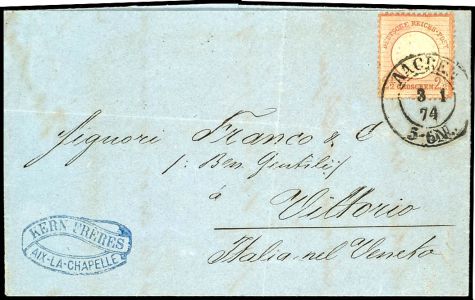 DEUTSCHE REICHS-POST
GROSCHEN
AACHEN
3 1
74
5-6N.
Signori Franco & C
/: Ben Gentili :/
à
Vittorio
Italia nel Veneto
KERN FRÈRES
AIX-LA-CHAPELLE